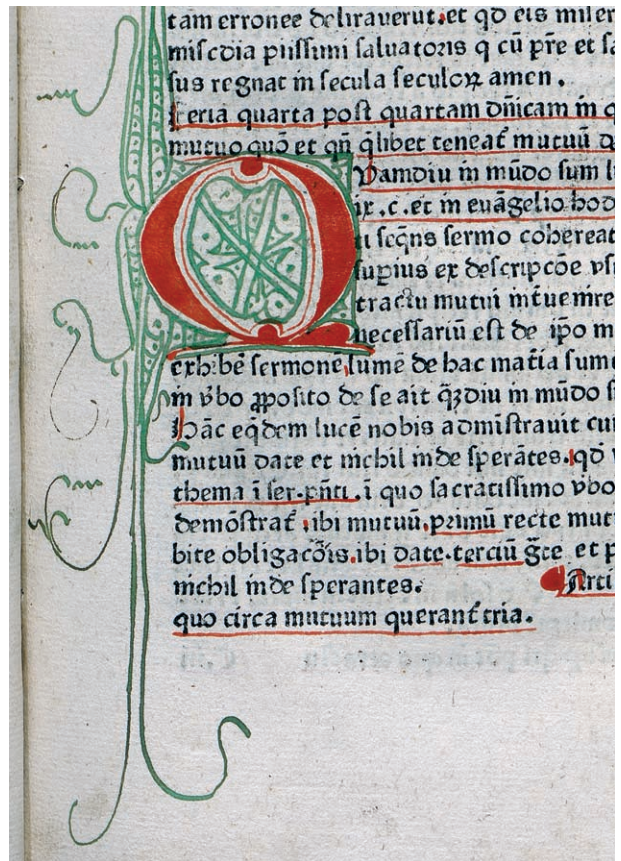 tam erronee delirauerut.et qd eis miser
misc̄dia piissimi saluatoris q cū pr̄e et sā
sus regnat in secula seculoꝝ amen.
Feria quarta post quartam dn̄icam in q
mutuo quō et qn̄ q̄libet teneat̄ mutuū d
Quamdiu in mūdo sum l
ix.c.et in euāgelio hod
ti seqn̄s sermo cohereat
supius ex descripcōe vs
tractu mutui
necessariū est de ip̄o m
exh:bē sermonē,sumē de hac mat̄ia sum
in v̄bo ꝓposito de se ait q̄ꝫdiu in mūdo s
hāc eqdem lucē nobis administrauit cui
mutuū date et nichil inde sperātes.qd v
thema ī ser.pn̄ti.ī quo sacratissimo v̄bo
demōstrat̄,ibi mutuū,primū recte mut
bite obligacōis.ibi date.terciū gr̄e et p
nichil inde sperantes. Arti
quo circa mutuum querant̄ tria.